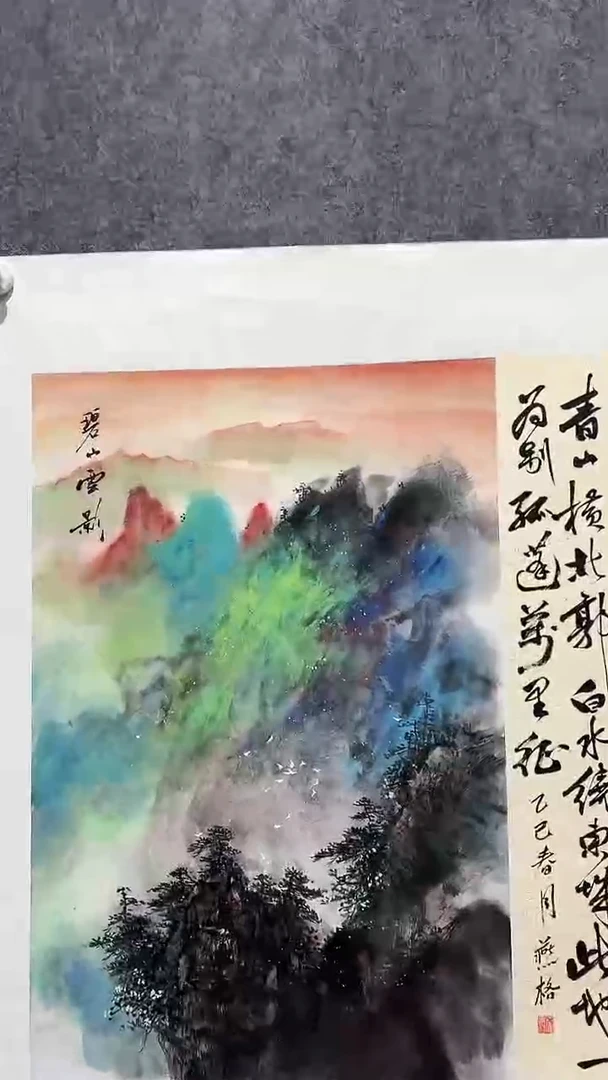 碧山雲影
青山橫北郭白水繞東城此地一
为别孤蓬萬里征
乙巳春月燕格